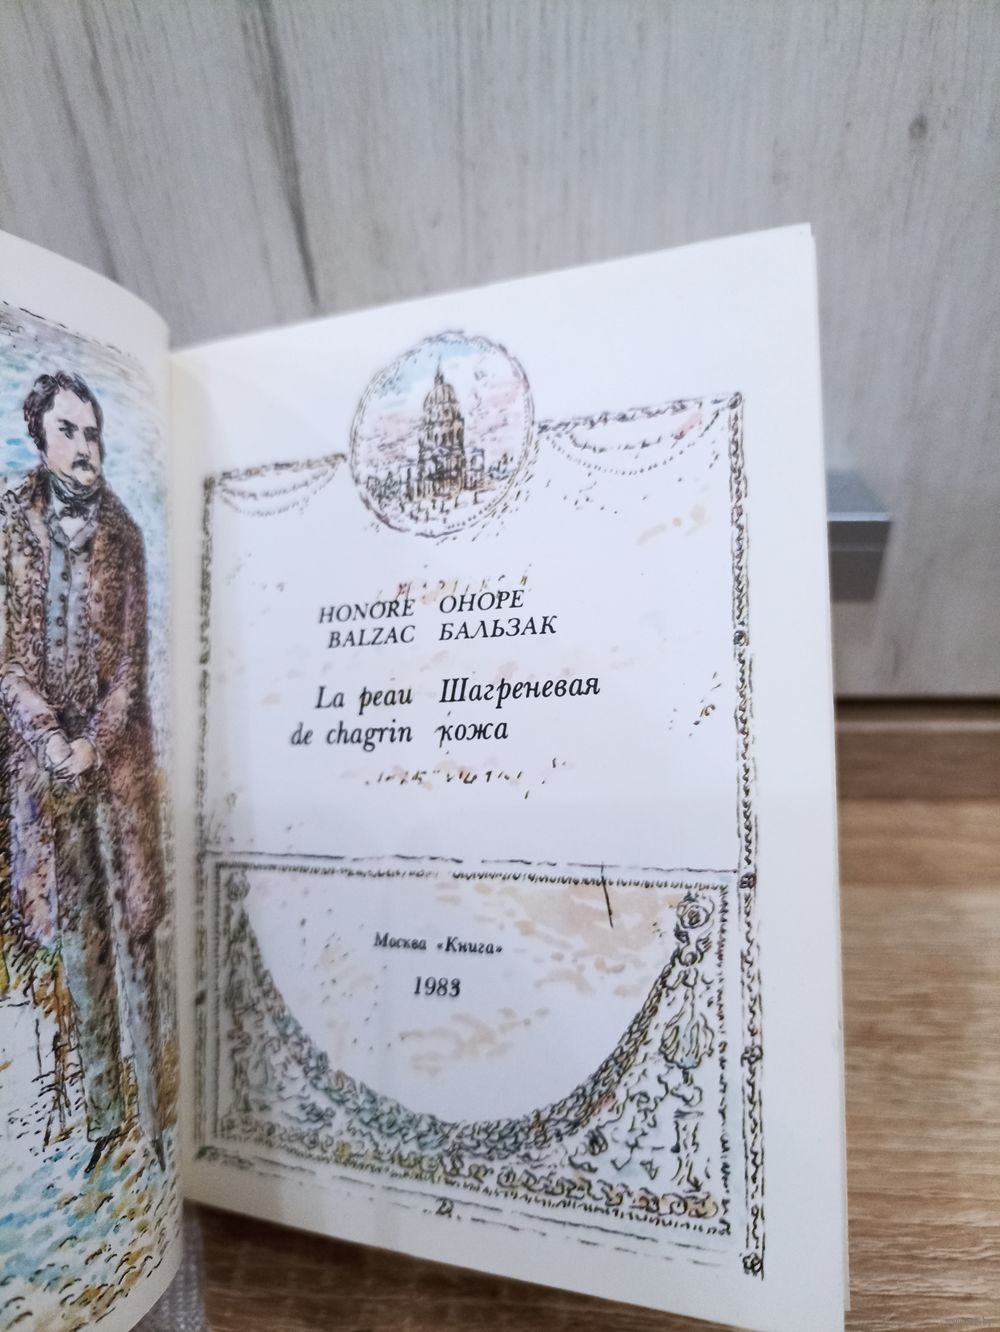 HONORE ОНОРЕ
BALZAC БАЛЬЗАК
La peau Шагреневая
de chagrin кожа
Москва «Книга»
1983